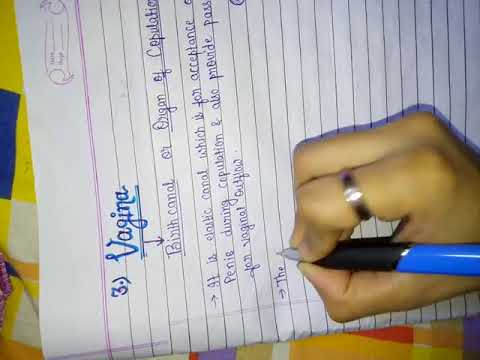 3.) Vagina
Birth canal or Organ of Copulation
→ It is elastic canal which is for acceptance
Penis during copulation & also provide pass
for vaginal outflow.
→ The